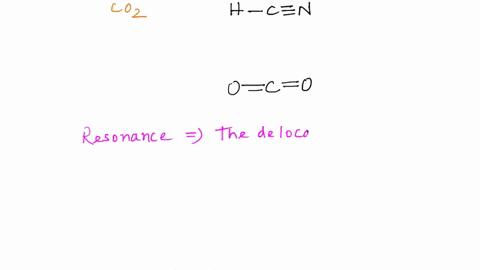 CO2
H-C≡N
O=C=O
Resonance => The deloco